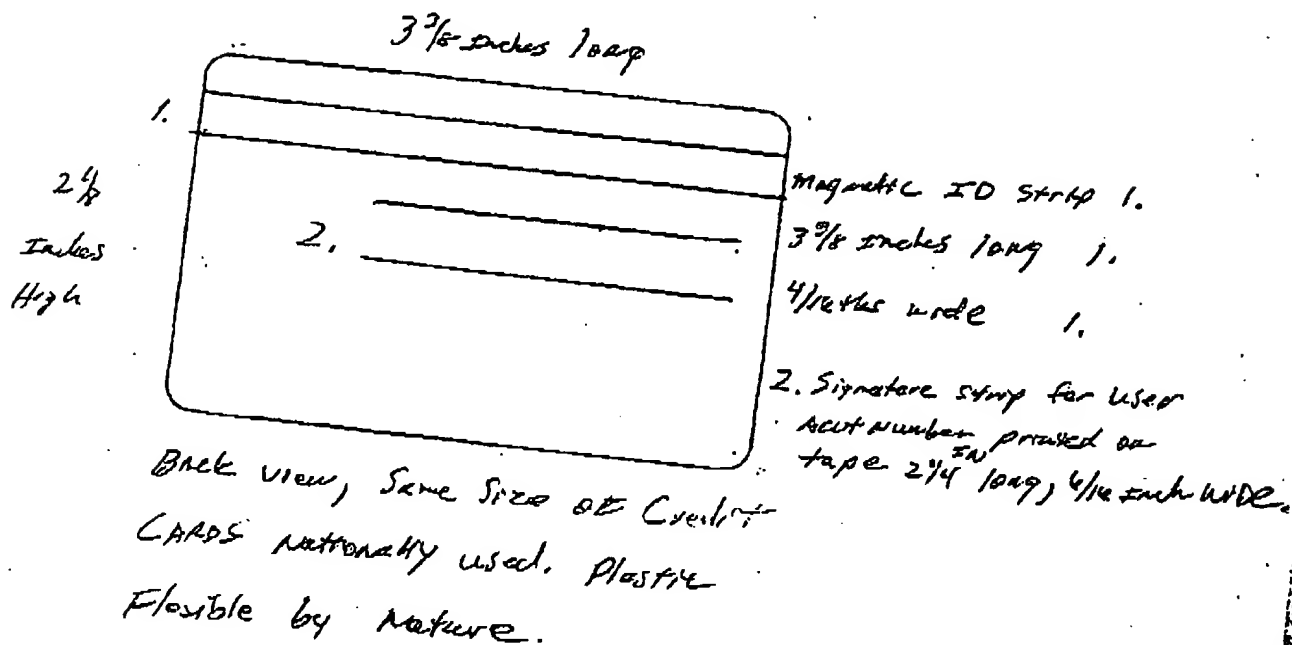 3 3/8 Inches long
1.
2 1/8
Inches
High
2.
Magnetic ID Strip 1.
3 3/8 Inches long 1.
4/16ths wide 1.
2. Signature strip for user
Acct Number printed on
tape 2 1/4 IN long, 6/16 Inch WIDE.
Back view, Same Size of Credit
CARDS Nationally used. Plastic
Flexible by Nature.